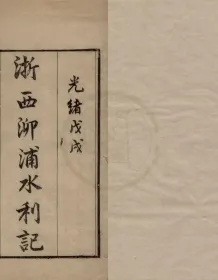 光緒戊戌
浙西泖浦水利記